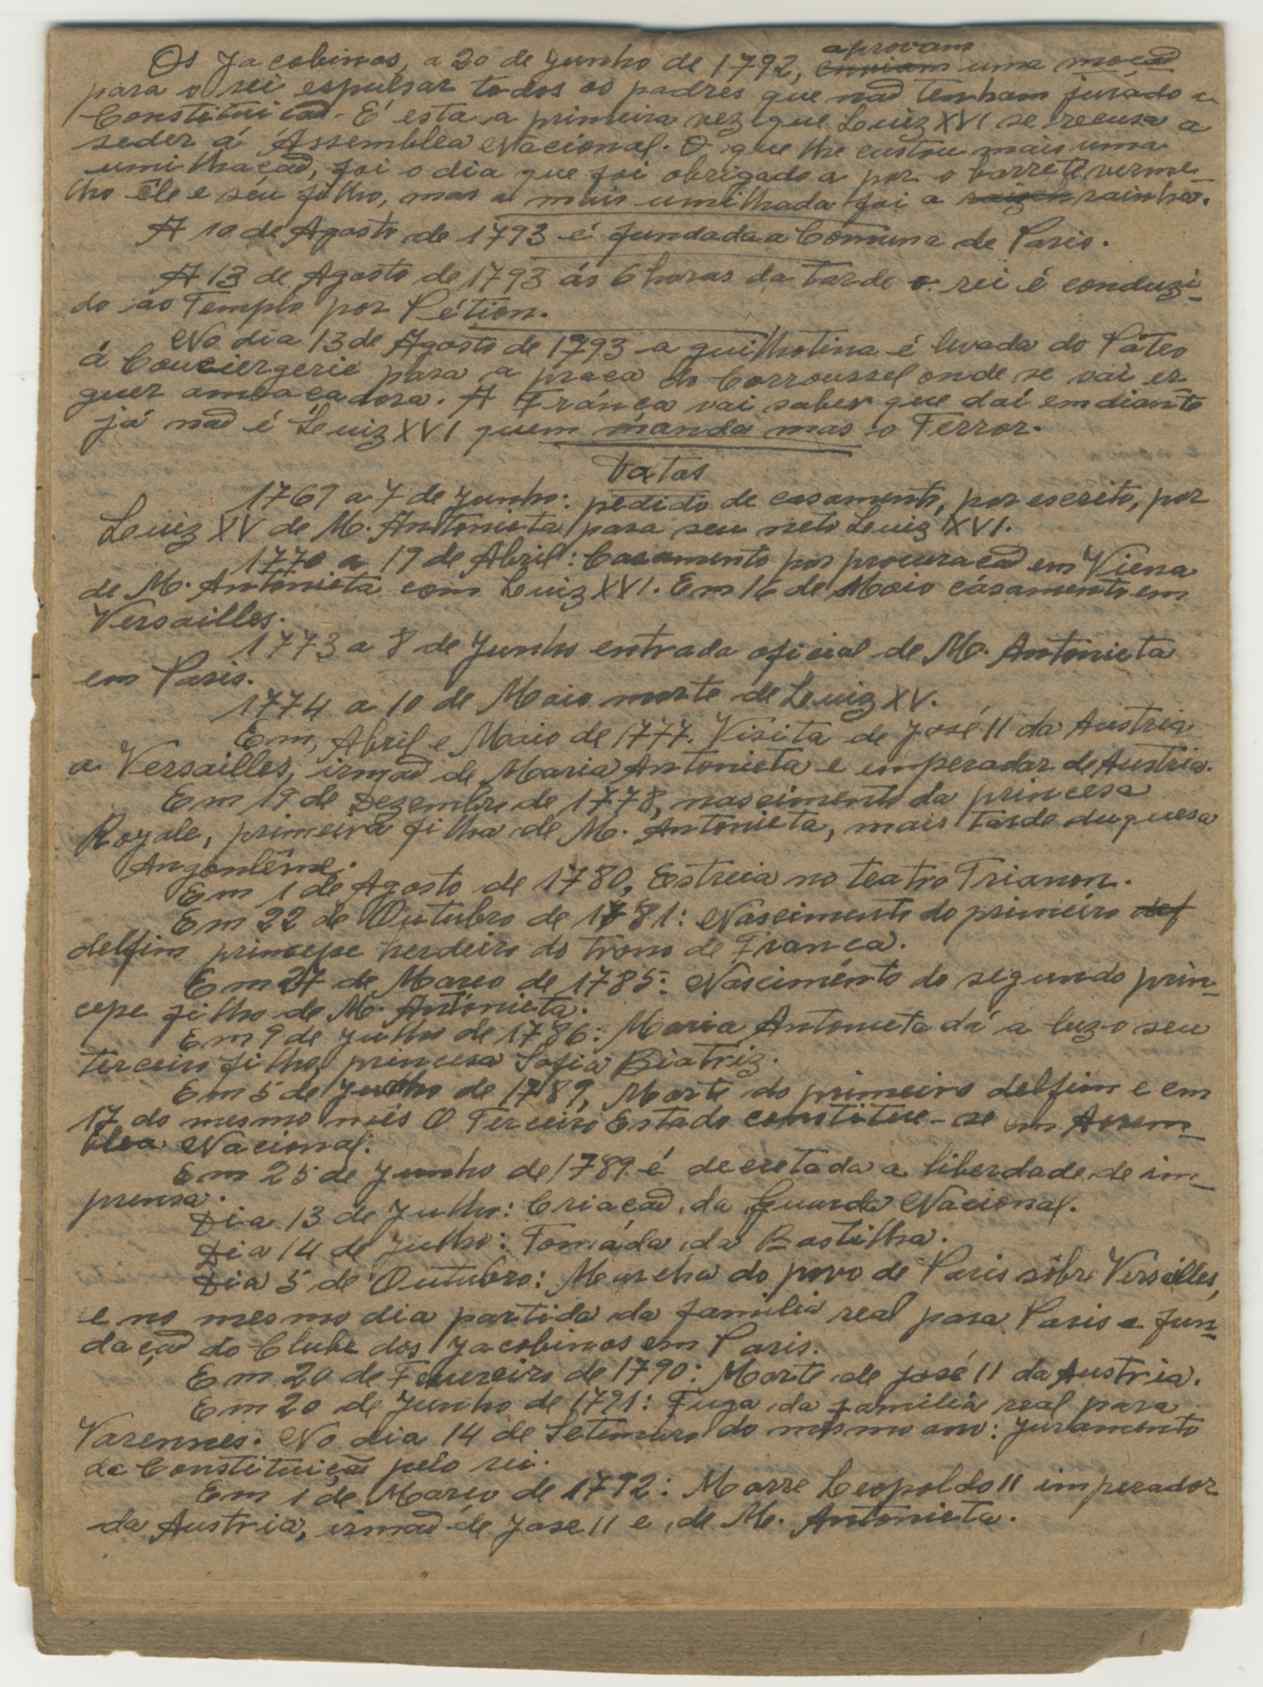 Os Jacobinos, a 20 de Junho de 1792, aprovam uma moçaõ
para o rei espulsar todos os padres que naõ tenham jurado a
Constituiçaõ. É esta a primeira vez que Luiz XVI se recusa a
seder á Assemblea Nacional. O que lhe custou mais uma
umilhaçaõ, foi o dia que foi obrigado a por o barrete verme-
lho êle e seu filho, mas a mais umilhada foi a rainha.
A 10 de Agosto de 1793 é fundada a Comuna de Paris.
A 13 de Agosto de 1793 ás 6 horas da tarde o rei é conduzi-
do ao Templo por Pétion.
No dia 13 de Agosto de 1793 a guilhotina é levada do Páteo
á Conciergerie para a praça do Carroussel onde se vai er
guer ameaçadora. A França vai saber que daí em diante
já naõ é Luiz XVI quem manda mas o Terror.
Datas
1769 a 7 de Junho: pedido de casamento, por escrito, por
Luiz XV de M. Antonieta para seu neto Luiz XVI.
1770 a 19 de Abril: Casamento por procuraçaõ em Viena
de M. Antonieta com Luiz XVI. Em 16 de Maio casamento em
Versailles.
1773 a 8 de Junho entrada oficial de M. Antonieta
em Paris.
1774 a 10 de Maio morte de Luiz XV.
Em, Abril e Maio de 1777. Visita de José II da Austria
a Versailles, irmaõ de Maria Antonieta e imperador de Austria.
Em 19 de Dezembro de 1778, nascimento da princesa
Royale, primeira filha de M. Antonieta, mais tarde duquesa
Angoulême.
Em 1 de Agosto de 1780, Estreia no teatro Trianon.
Em 22 de Outubro de 1781: Nascimento do primeiro def
delfim principe herdeiro do trono de França.
Em 27 de Março de 1785: Nascimento do segundo prin-
cepe filho de M. Antonieta.
Em 9 de Julho de 1786: Maria Antonieta dá a luz o seu
terceiro filho, princesa Sofia Biatriz.
Em 5 de Junho de 1789, Morte do primeiro delfim e em
17 do mesmo mês O Terceiro Estado constitue-se em Assem-
blea Nacional.
Em 25 de Junho de 1789 é decretada a liberdade de im-
prensa.
Dia 13 de Julho: Criaçaõ da Guarda Nacional.
Dia 14 de Julho: Tomáda da Bastilha.
Dia 5 de Outubro: Marcha do povo de Paris sôbre Versailles,
e no mesmo dia partida da familia real para Paris e fun-
daçaõ do Clube dos Jacobinos em Paris.
Em 20 de Fevereiro de 1790: Morte de José II da Austria.
Em 20 de Junho de 1791: Fuga da familia real para
Varennes. No dia 14 de Setembro do mesmo ano: Juramento
da Constituiçaõ pelo rei.
Em 1 de Março de 1792: Morre Leopoldo II imperador
da Austria, irmaõ de Jose II e de M. Antonieta.